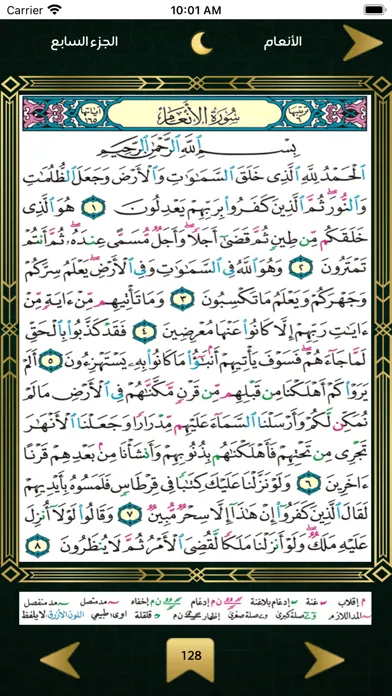 Carrier 10:01 AM
الأنعام الجزء السابع
ترتيبها ٦ سُورَةُ الأَنْعَام آياتها ١٦٥
بِسْمِ اللَّهِ الرَّحْمَٰنِ الرَّحِيمِ
الْحَمْدُ لِلَّهِ الَّذِى خَلَقَ السَّمَٰوَٰتِ وَالْأَرْضَ وَجَعَلَ الظُّلُمَٰتِ
وَالنُّورَ ثُمَّ الَّذِينَ كَفَرُوا بِرَبِّهِمْ يَعْدِلُونَ ١ هُوَ الَّذِى
خَلَقَكُم مِّن طِينٍ ثُمَّ قَضَىٰٓ أَجَلًا وَأَجَلٌ مُّسَمًّى عِندَهُۥ ثُمَّ أَنتُمْ
تَمْتَرُونَ ٢ وَهُوَ اللَّهُ فِى السَّمَٰوَٰتِ وَفِى الْأَرْضِ يَعْلَمُ سِرَّكُمْ
وَجَهْرَكُمْ وَيَعْلَمُ مَا تَكْسِبُونَ ٣ وَمَا تَأْتِيهِم مِّنْ ءَايَةٍ مِّنْ
ءَايَٰتِ رَبِّهِمْ إِلَّا كَانُوا عَنْهَا مُعْرِضِينَ ٤ فَقَدْ كَذَّبُوا بِالْحَقِّ
لَمَّا جَاءَهُمْ فَسَوْفَ يَأْتِيهِمْ أَنۢبَٰٓؤُا مَا كَانُوا بِهِۦ يَسْتَهْزِءُونَ ٥ أَلَمْ
يَرَوْا كَمْ أَهْلَكْنَا مِن قَبْلِهِم مِّن قَرْنٍ مَّكَّنَّٰهُمْ فِى الْأَرْضِ مَا لَمْ
نُمَكِّن لَّكُمْ وَأَرْسَلْنَا السَّمَاءَ عَلَيْهِم مِّدْرَارًا وَجَعَلْنَا الْأَنْهَٰرَ
تَجْرِى مِن تَحْتِهِمْ فَأَهْلَكْنَٰهُم بِذُنُوبِهِمْ وَأَنشَأْنَا مِنۢ بَعْدِهِمْ قَرْنًا
ءَاخَرِينَ ٦ وَلَوْ نَزَّلْنَا عَلَيْكَ كِتَٰبًا فِى قِرْطَاسٍ فَلَمَسُوهُ بِأَيْدِيهِمْ
لَقَالَ الَّذِينَ كَفَرُوا إِنْ هَٰذَآ إِلَّا سِحْرٌ مُّبِينٌ ٧ وَقَالُوا لَوْلَآ أُنزِلَ
عَلَيْهِ مَلَكٌ وَلَوْ أَنزَلْنَا مَلَكًا لَّقُضِىَ الْأَمْرُ ثُمَّ لَا يُنظَرُونَ ٨
م إقلاب غنة إدغام بلاغنة ن م إدغام ن م إخفاء مد متصل مد منفصل
المد اللازم صلة كبرى صلة صغرى إظهار ن م قلقلة اوى: طبيعي اللون الأزرق لا يلفظ
128